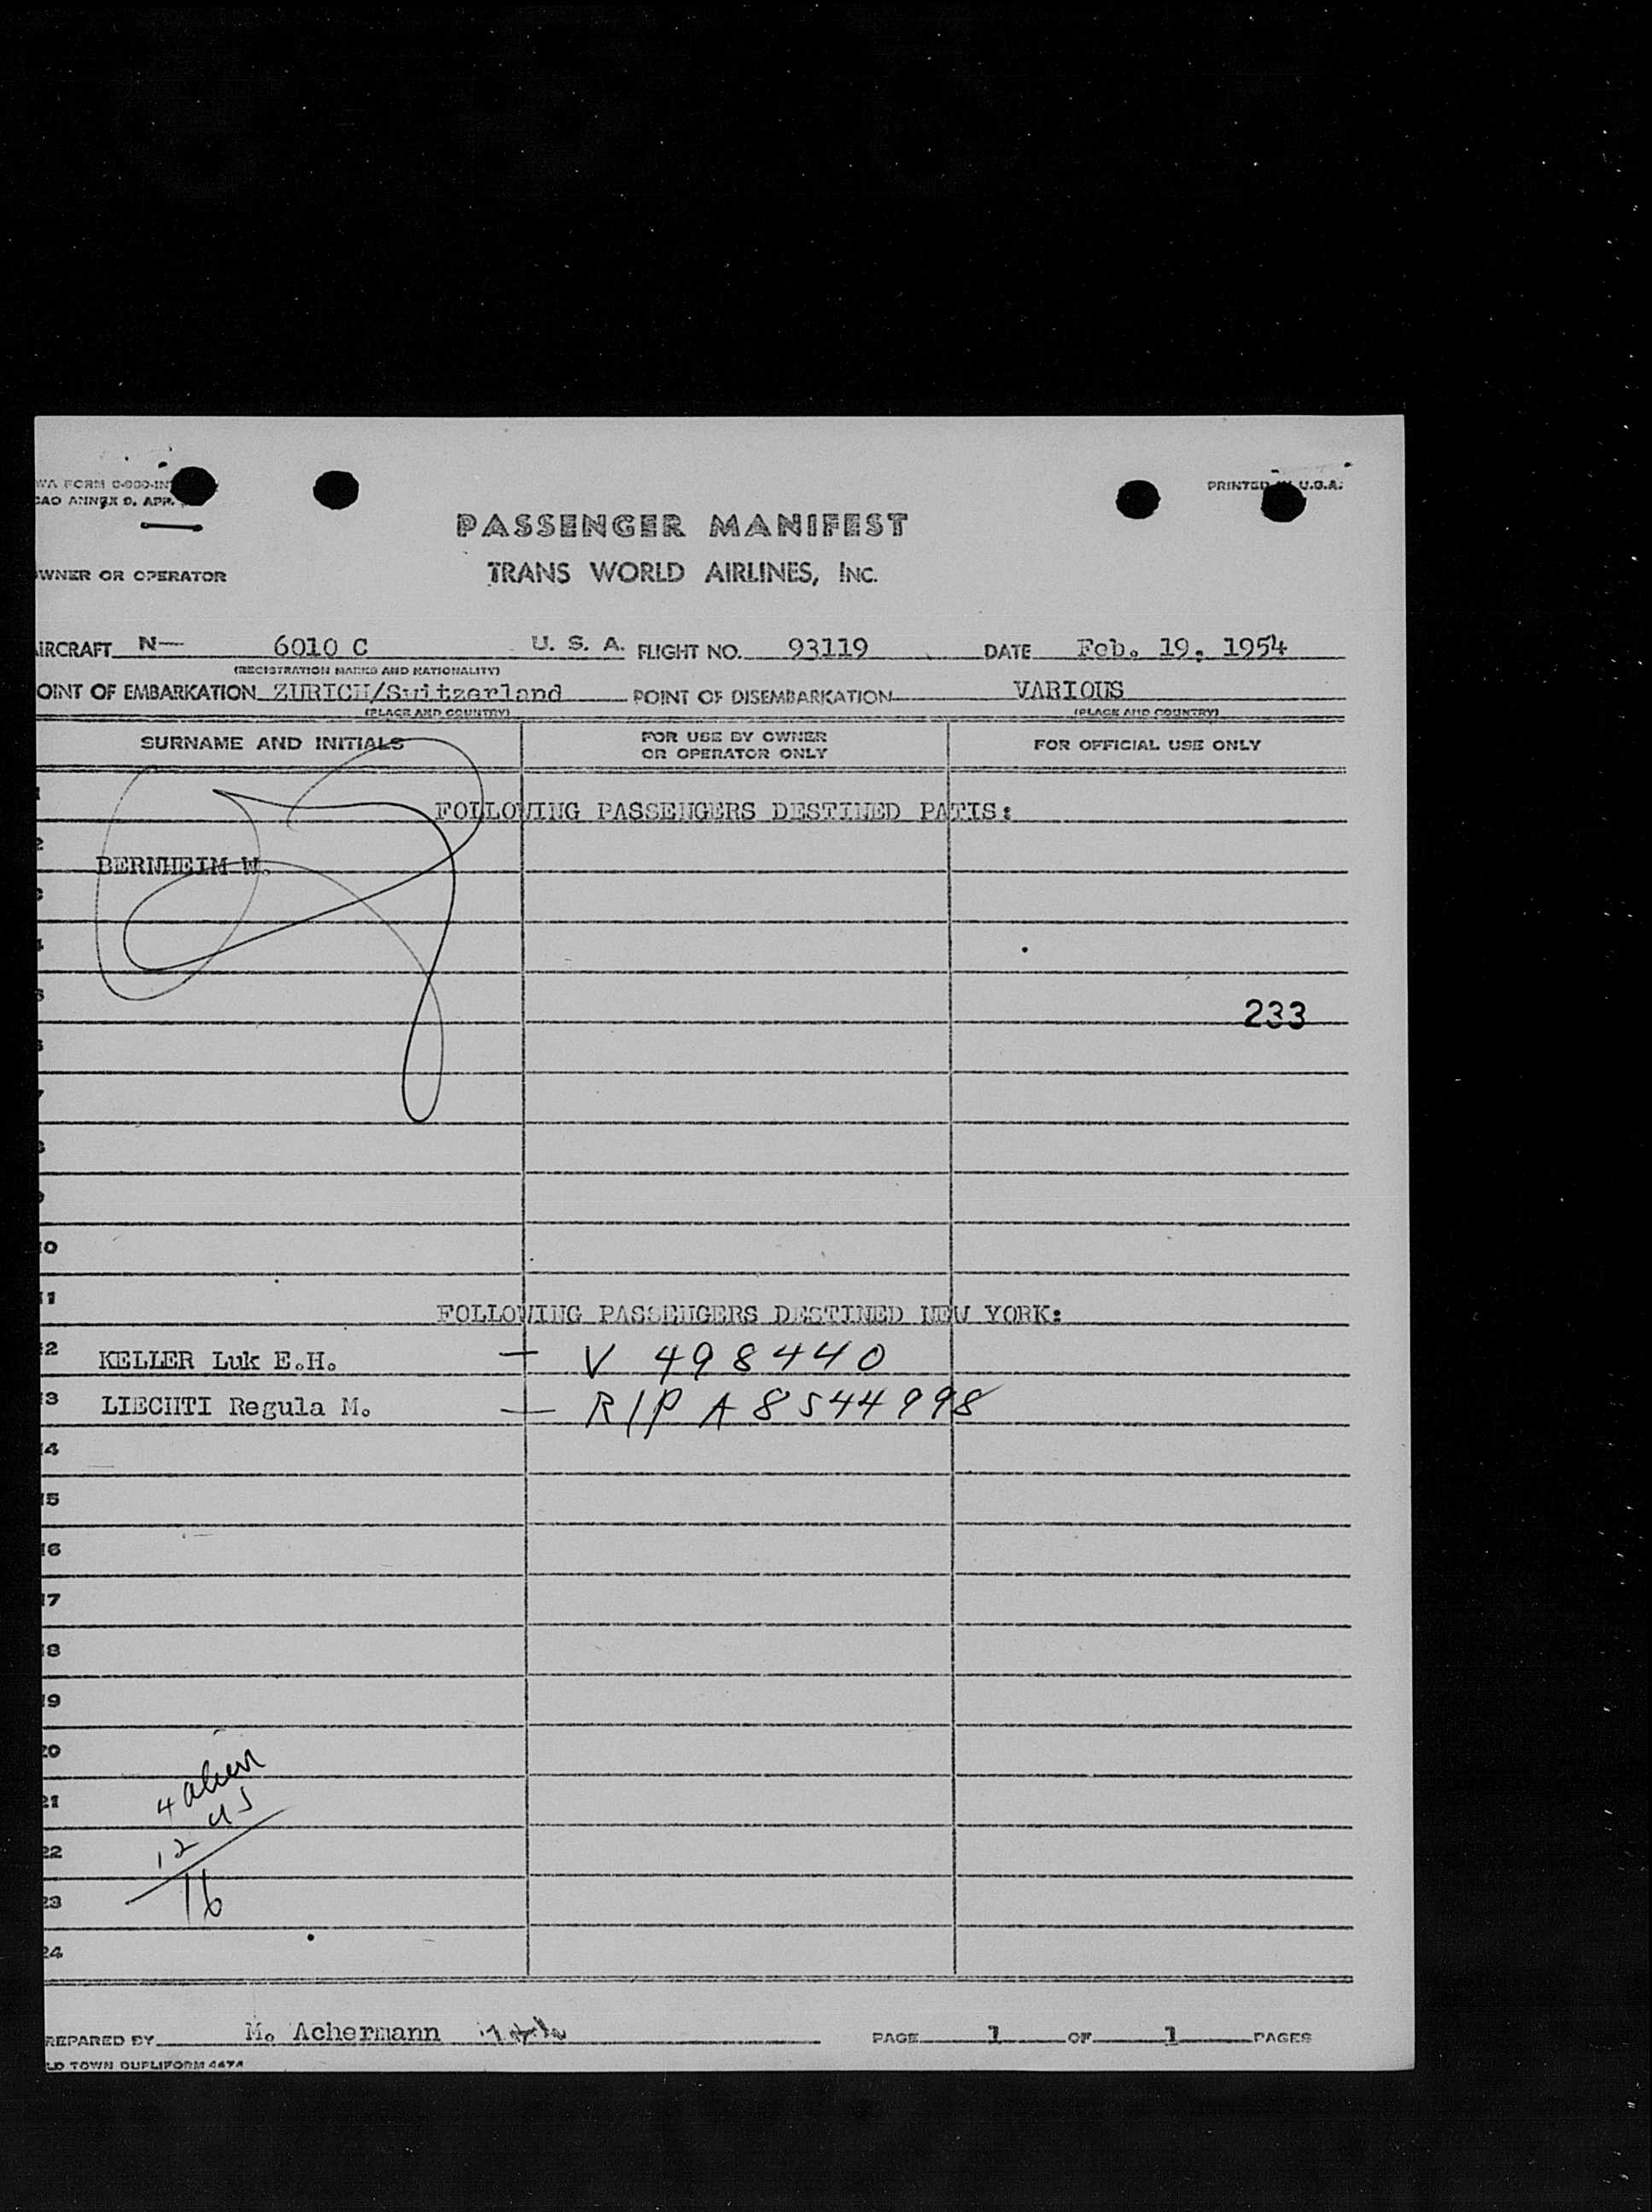 WA FORM C-900-IN
CAO ANNEX 9, APP.
PRINTED IN U.S.A.
PASSENGER MANIFEST
WNER OR OPERATOR
TRANS WORLD AIRLINES, INC.
IRCRAFT N— 6010 C U. S. A. FLIGHT NO. 93119 DATE Feb. 19, 1954
(REGISTRATION MARKS AND NATIONALITY)
OINT OF EMBARKATION ZURICH/Switzerland POINT OF DISEMBARKATION VARIOUS
(PLACE AND COUNTRY) (PLACE AND COUNTRY)
SURNAME AND INITIALS FOR USE BY OWNER OR OPERATOR ONLY FOR OFFICIAL USE ONLY
1 FOLLOWING PASSENGERS DESTINED PATIS:
2 BERNHEIM W.
3
4
5 233
6
7
8
9
10
11 FOLLOWING PASSENGERS DESTINED NEW YORK:
12 KELLER Luk E.H. — V 498440
13 LIECHTI Regula M. — R/P A8544998
14
15
16
17
18
19
20
4 alien
21
12 us
22
16
23
24
REPARED BY M. Achermann PAGE 1 OF 1 PAGES
LD TOWN DUPLIFORM 4474